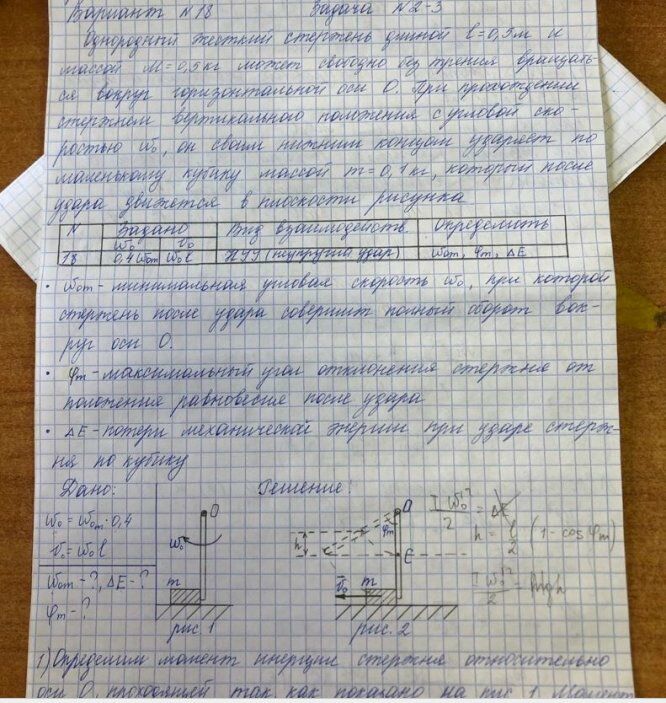 Вариант N18 Задача N2-3
Однородный жесткий стержень длиной l=0,5м и
массой M=0,5кг может свободно без трения вращать-
ся вокруг горизонтальной оси O. При прохождении
стержнем вертикального положения с угловой ско-
ростью ω₀, он своим нижним концом ударяет по
маленькому кубику массой m=0,1кг, который после
удара движется в плоскости рисунка
N Задано Вид взаимодейств Определить
ω₀ v₀
18 0,4ω₀m ω₀l НУУ (неупругий удар) ω₀m, φm, ΔE
• ω₀m - минимальная угловая скорость ω₀, при которой
стержень после удара совершит полный оборот вок-
руг оси O.
• φm - максимальный угол отклонения стержня от
положения равновесия после удара
• ΔE - потери механической энергии при ударе стерж-
ня по кубику
Дано: Решение:
ω₀ = ω₀m·0,4
v₀ = ω₀l
ω₀m - ?, ΔE - ?
φm - ?
O
ω₀
m
рис. 1
O
φm
h
C
v₀
m
рис. 2
I ω₀'²/2 = ΔE
h = l/2 (1 - cos φm)
I ω₀'²/2 = mgh
1) Определим момент инерции стержня относительно
оси O, проходящей так, как показано на рис 1. Момент